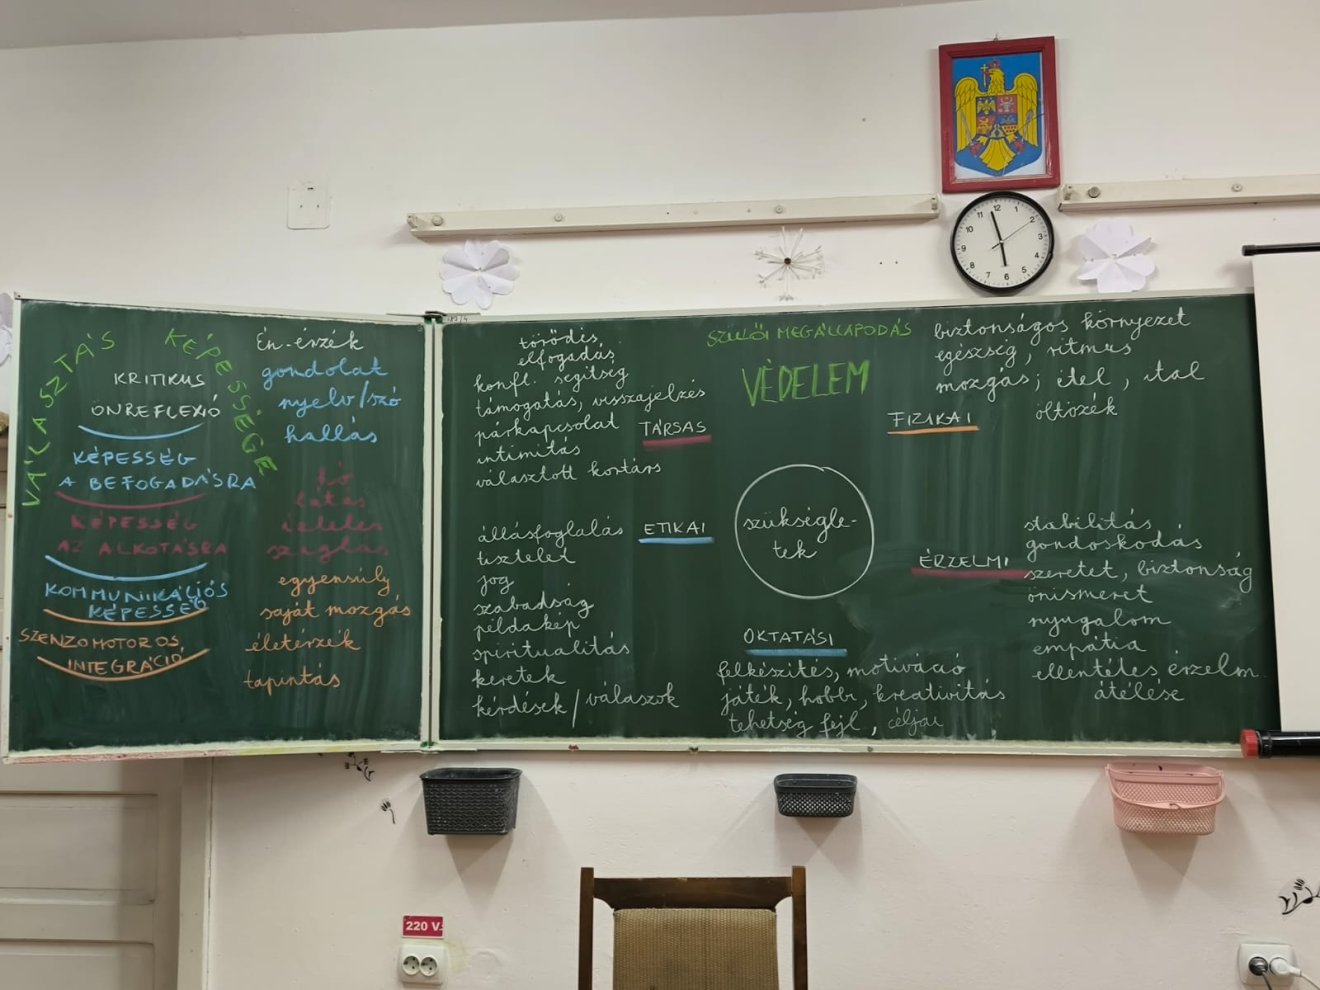 VÁLASZTÁS KÉPESSÉGE
KRITIKUS
ÖNREFLEXIÓ
KÉPESSÉG
A BEFOGADÁSRA
KÉPESSÉG
AZ ALKOTÁSRA
KOMMUNIKÁCIÓS
KÉPESSÉG
SZENZOMOTOROS
INTEGRÁCIÓ
Én-érzék
gondolat
nyelv/szó
hallás
hő
látás
ízlelés
szaglás
egyensúly
saját mozgás
életérzék
tapintás
törődés,
elfogadás
konfl. segítség
támogatás, visszajelzés
párkapcsolat
intimitás
választott kortárs
TÁRSAS
SZÜLŐI MEGÁLLAPODÁS
VÉDELEM
biztonságos környezet
egészség, ritmus
mozgás; étel, ital
öltözék
FIZIKAI
állásfoglalás
tisztelet
jog
szabadság
példakép
spiritualitás
keretek
kérdések/válaszok
ETIKAI
szükségle-
tek
ÉRZELMI
stabilitás
gondoskodás
szeretet, biztonság
önismeret
nyugalom
empátia
ellentétes érzelm.
átélése
OKTATÁSI
felkészítés, motiváció
játék, hobbi, kreativitás
tehetség fejl, céljai
12
1
2
3
4
5
6
7
8
9
10
11
220 V.